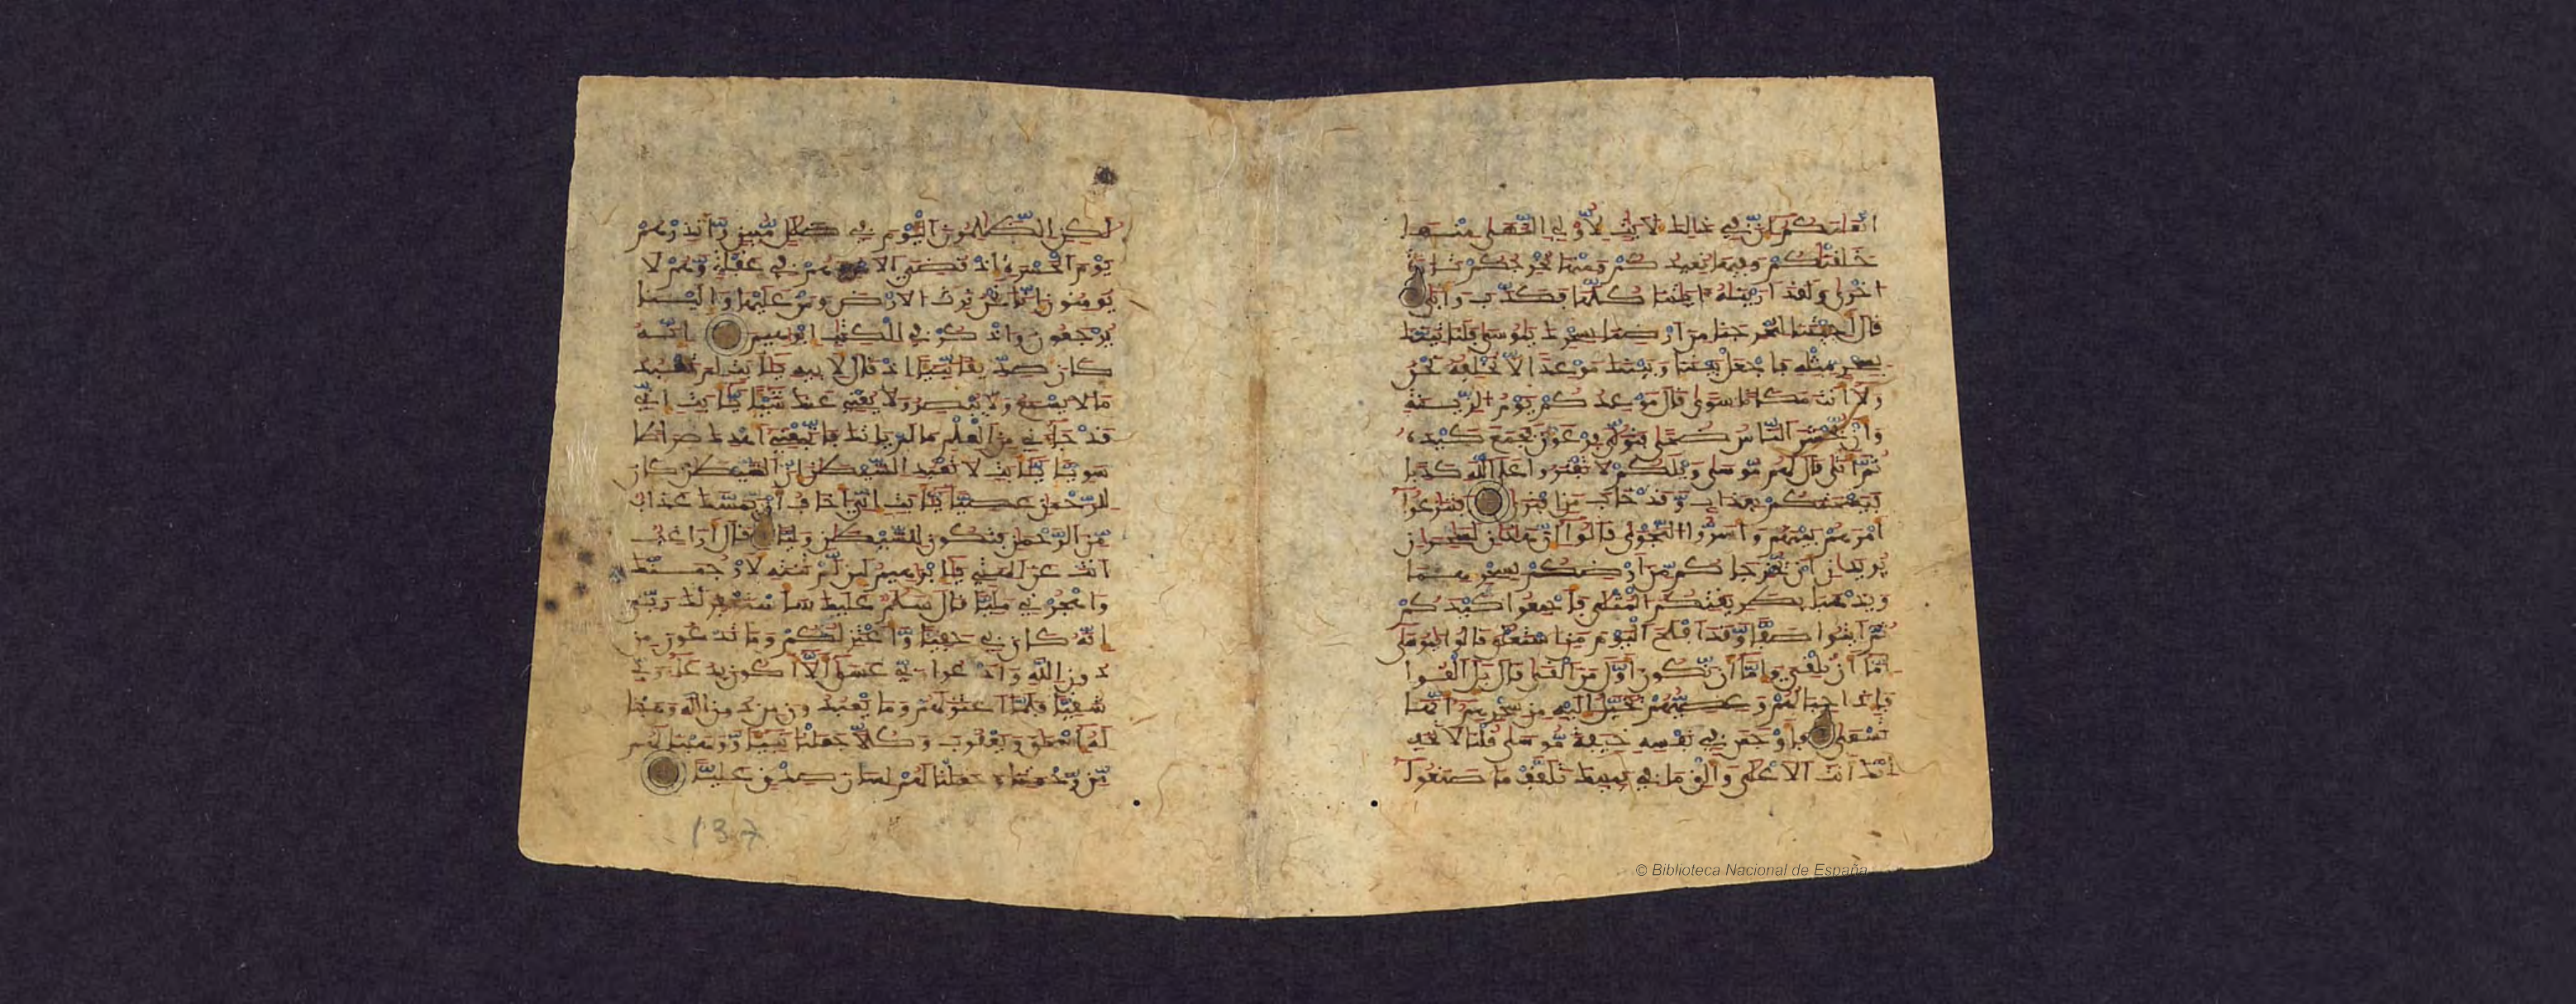 انعامكم ان في ذلك لايت لاولي النهى منها
خلقناكم وفيها نعيدكم ومنها نخرجكم تارة
اخرى ولقد اريناه ايتنا كلها فكذب وابى
قال اجئتنا لتخرجنا من ارضنا بسحرك يموسى فلناتينك
بسحر مثله فاجعل بيننا وبينك موعدا لا نخلفه نحن
ولا انت مكانا سوى قال موعدكم يوم الزينة
وان يحشر الناس ضحى فتولى فرعون فجمع كيده
ثم اتى قال لهم موسى ويلكم لا تفتروا على الله كذبا
فيسحتكم بعذاب وقد خاب من افترى فتنزعوا
امرهم بينهم واسروا النجوى قالوا ان هذان لسحران
يريدان ان يخرجاكم من ارضكم بسحرهما
ويذهبا بطريقتكم المثلى فاجمعوا كيدكم
ثم ايتوا صفا وقد افلح اليوم من استعلى قالوا يموسى
اما ان تلقي واما ان نكون اول من القى قال بل القوا
فاذا حبالهم وعصيهم يخيل اليه من سحرهم انها
تسعى فاوجس في نفسه خيفة موسى قلنا لا تخف
انك انت الاعلى والق ما في يمينك تلقف ما صنعوا
لكن الظلمون اليوم في ضلل مبين وانذرهم
يوم الحسرة اذ قضي الامر وهم في غفلة وهم لا
يومنون انا نحن نرث الارض ومن عليها والينا
يرجعون واذكر في الكتب ابرهيم انه
كان صديقا نبيا اذ قال لابيه يابت لم تعبد
ما لا يسمع ولا يبصر ولا يغني عنك شيا يابت اني
قد جاءني من العلم ما لم ياتك فاتبعني اهدك صراطا
سويا يابت لا تعبد الشيطن ان الشيطن كان
للرحمن عصيا يابت اني اخاف ان يمسك عذاب
من الرحمن فتكون للشيطن وليا قال اراغب
انت عن الهتي يابرهيم لين لم تنته لارجمنك
واهجرني مليا قال سلم عليك ساستغفر لك ربي
انه كان بي حفيا واعتزلكم وما تدعون من
دون الله وادعوا ربي عسى الا اكون بدعاء ربي
شقيا فلما اعتزلهم وما يعبدون من دون الله وهبنا
له اسحق ويعقوب وكلا جعلنا نبيا ووهبنا لهم
من رحمتنا وجعلنا لهم لسان صدق عليا
137
© Biblioteca Nacional de España